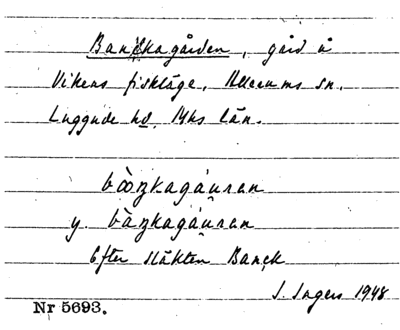 Banckagården, gård å
Vikens fiskläge, Väsums sn.
Luggude hd. Mhs län.
bàŋkagáu̯ran
y. bàŋkagáu̯ran
Efter släkten Banck
S. Ingers 1948
Nr 5693.